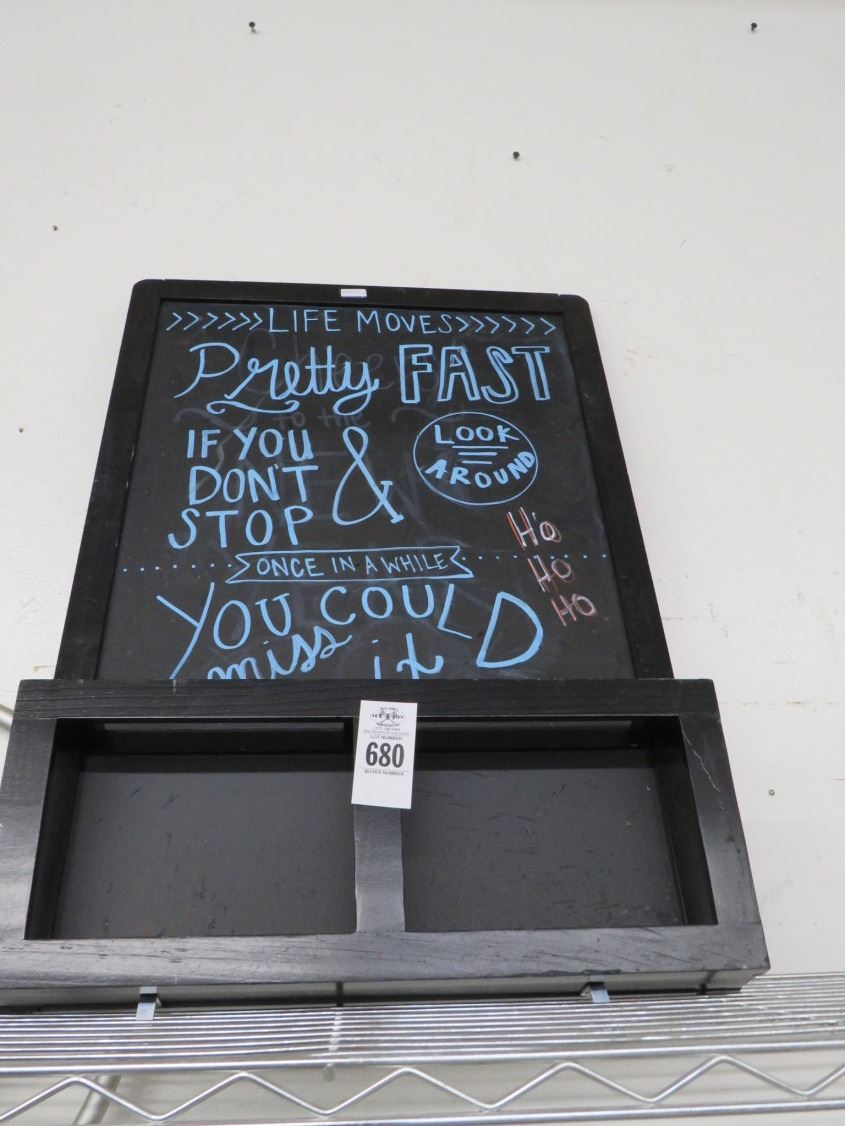 >>>>>>LIFE MOVES>>>>>>
Pretty FAST
IF YOU
DON'T
STOP
&
LOOK
AROUND
ONCE IN A WHILE
YOU COULD
miss it
Ho
Ho
Ho
LOT NUMBER
680
BUYER NUMBER